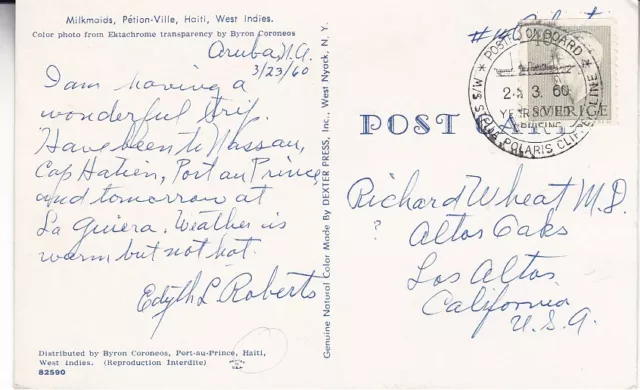 Milkmaids, Pétion-Ville, Haiti, West Indies.
Color photo from Ektachrome transparency by Byron Coroneos
Aruba, N.A.
3/23/60
I am having a
wonderful trip.
Have been to Nassau,
Cap Hatien, Port au Prince
and tomorrow at
La Guiera. Weather is
warm but not hot.
Edyth L Roberts
Distributed by Byron Coroneos, Port-au-Prince, Haiti,
West Indies. (Reproduction Interdite)
82590
Genuine Natural Color Made By DEXTER PRESS, Inc., West Nyack, N. Y.
POST CARD
SVERIGE
POSTED ON BOARD
3. 60
M/S STELLA POLARIS CLIPPER LINE
Richard Wheat M.D.
?
Altos Oaks
Los Altos
California
U.S.A.